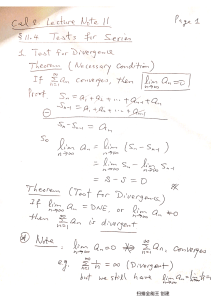 Cal 2 Lecture Note 11 Page 1
§ 11.4 Tests for Series
1. Test for Divergence
Theorem (Necessary Condition)
If ∑_{n=1}^{∞} a_n converges, then lim_{n→∞} a_n = 0
Proof. S_n = a_1 + a_2 + ... + a_{n-1} + a_n
S_{n-1} = a_1 + a_2 + ... + a_{n-1}
⊖
S_n - S_{n-1} = a_n
So lim_{n→∞} a_n = lim_{n→∞} (S_n - S_{n-1})
= lim_{n→∞} S_n - lim_{n→∞} S_{n-1}
= S - S = 0
Theorem (Test for Divergence)
If lim_{n→∞} a_n = DNE, or lim_{n→∞} a_n ≠ 0
then ∑_{n=1}^{∞} a_n is divergent
Note: lim_{n→∞} a_n = 0 ⇏ ∑_{n=1}^{∞} a_n converges
eg. ∑_{n=1}^{∞} 1/n = ∞ (Divergent)
but we still have lim_{n→∞} a_n = lim 1/n = 0
扫描全能王 创建